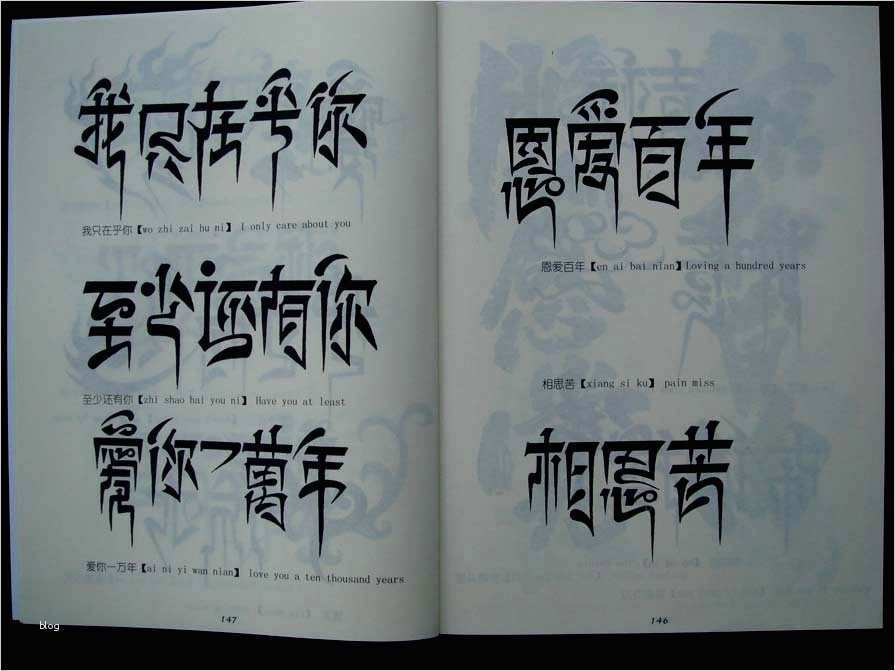 我只在乎你
我只在乎你【wo zhi zai hu ni】 I only care about you
至少还有你
至少还有你【zhi shao hai you ni】 Have you at least
愛你一萬年
爱你一万年【ai ni yi wan nian】 love you a ten thousand years
147
恩爱百年
恩爱百年【en ai bai nian】Loving a hundred years
相思苦【xiang si ku】 pain miss
相思苦
146
blog